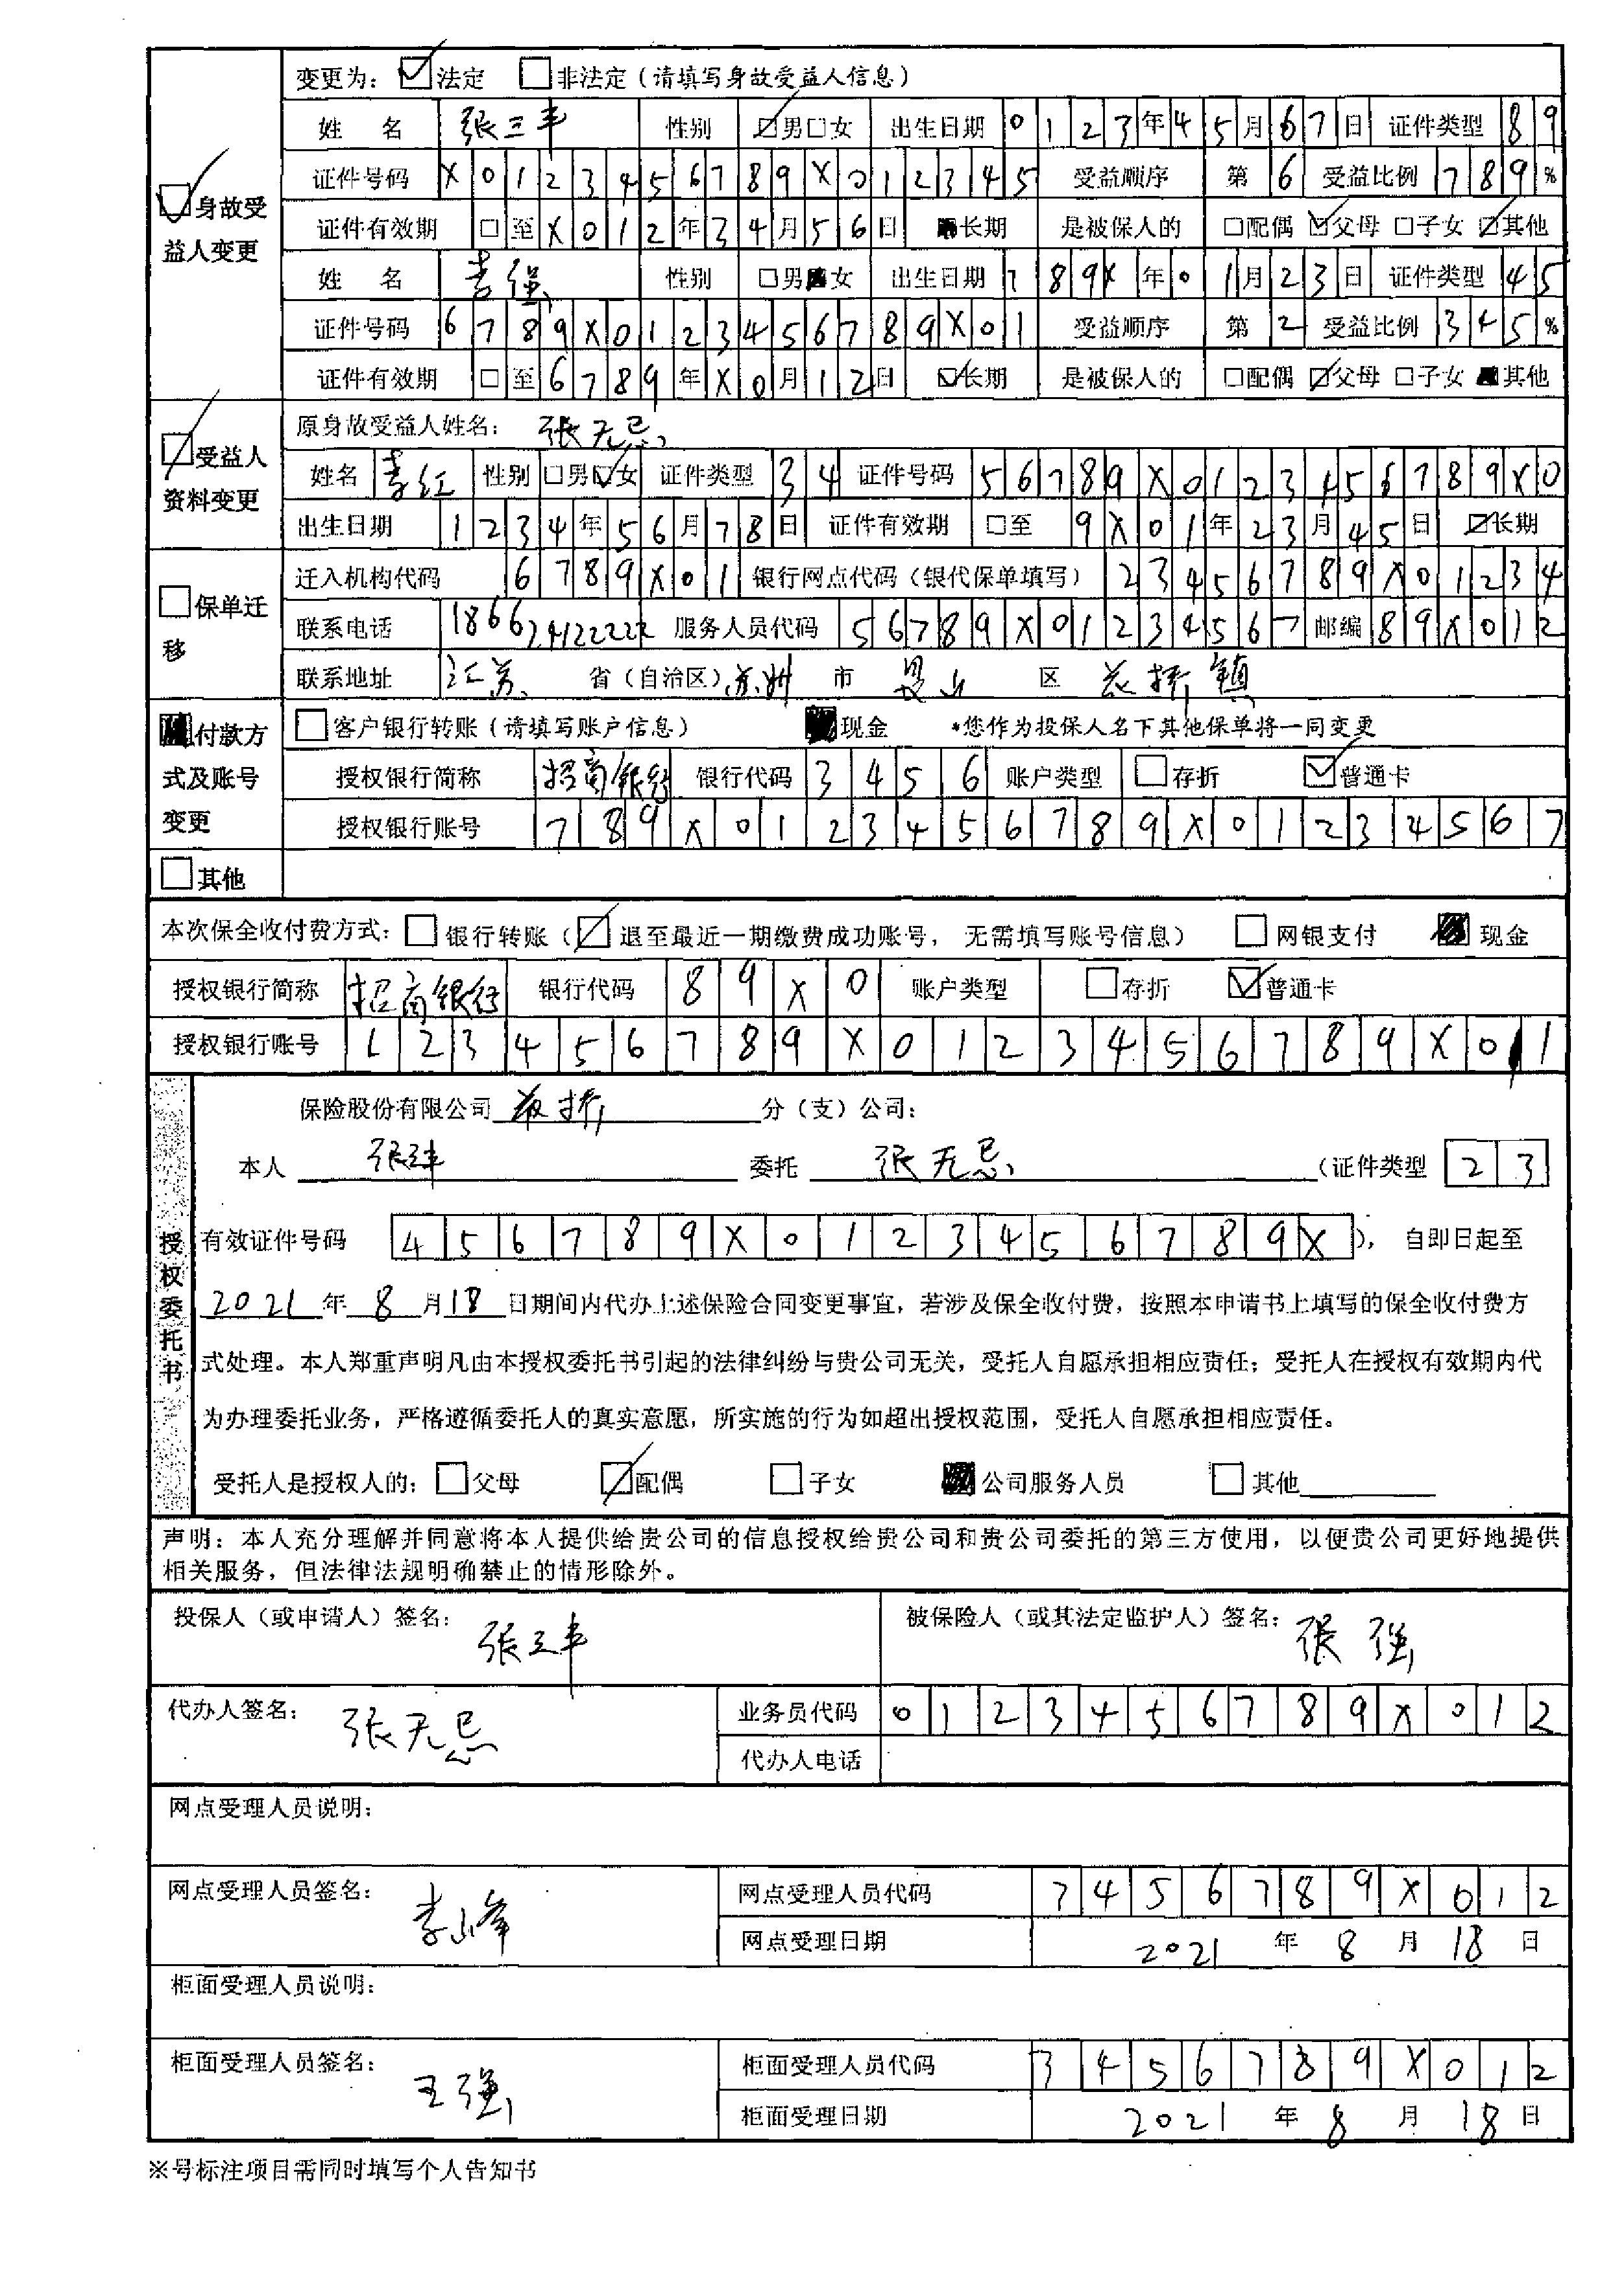 变更为：☑法定 □非法定（请填写身故受益人信息）
☑身故受益人变更
姓 名 张三丰 性别 ☑男□女 出生日期 0123年45月67日 证件类型 89
证件号码 X0123456789X012345 受益顺序 第6 受益比例 789%
证件有效期 □至X012年34月56日 ■长期 是被保人的 □配偶 ☑父母 □子女 ☑其他
姓 名 李强 性别 □男■女 出生日期 789X年01月23日 证件类型 45
证件号码 6789X0123456789X01 受益顺序 第2 受益比例 345%
证件有效期 □至6789年X0月12日 ☑长期 是被保人的 □配偶 ☑父母 □子女 ■其他
☑受益人资料变更
原身故受益人姓名：张无忌
姓名 李红 性别 □男☑女 证件类型 34 证件号码 56789X0123456789X0
出生日期 1234年56月78日 证件有效期 □至 9X01年23月45日 ☑长期
□保单迁移
迁入机构代码 6789X01 银行网点代码（银代保单填写） 23456789X01234
联系电话 186624122222 服务人员代码 56789X01234567 邮编 89X012
联系地址 江苏 省（自治区）苏州 市 昆山 区 花桥镇
■付款方式及账号变更
□客户银行转账（请填写账户信息） ■现金 *您作为投保人名下其他保单将一同变更
授权银行简称 招商银行 银行代码 3456 账户类型 □存折 ☑普通卡
授权银行账号 789X0123456789X01234567
□其他
本次保全收付费方式：□银行转账（☑退至最近一期缴费成功账号，无需填写账号信息） □网银支付 ■现金
授权银行简称 招商银行 银行代码 89X0 账户类型 □存折 ☑普通卡
授权银行账号 123456789X0123456789X01
授权委托书
保险股份有限公司 花桥 分（支）公司：
本人 张三丰 委托 张无忌 （证件类型 23
有效证件号码 456789X0123456789X ），自即日起至
2021 年 8 月 18 日期间内代办上述保险合同变更事宜，若涉及保全收付费，按照本申请书上填写的保全收付费方
式处理。本人郑重声明凡由本授权委托书引起的法律纠纷与贵公司无关，受托人自愿承担相应责任；受托人在授权有效期内代
为办理委托业务，严格遵循委托人的真实意愿，所实施的行为如超出授权范围，受托人自愿承担相应责任。
受托人是授权人的：□父母 ☑配偶 □子女 ■公司服务人员 □其他
声明：本人充分理解并同意将本人提供给贵公司的信息授权给贵公司和贵公司委托的第三方使用，以便贵公司更好地提供
相关服务，但法律法规明确禁止的情形除外。
投保人（或申请人）签名：张三丰 被保险人（或其法定监护人）签名：张强
代办人签名：张无忌 业务员代码 0123456789X012
代办人电话
网点受理人员说明：
网点受理人员签名：李小峰 网点受理人员代码 3456789X012
网点受理日期 2021 年 8 月 18 日
柜面受理人员说明：
柜面受理人员签名：王强 柜面受理人员代码 3456789X012
柜面受理日期 2021 年 8 月 18 日
※号标注项目需同时填写个人告知书